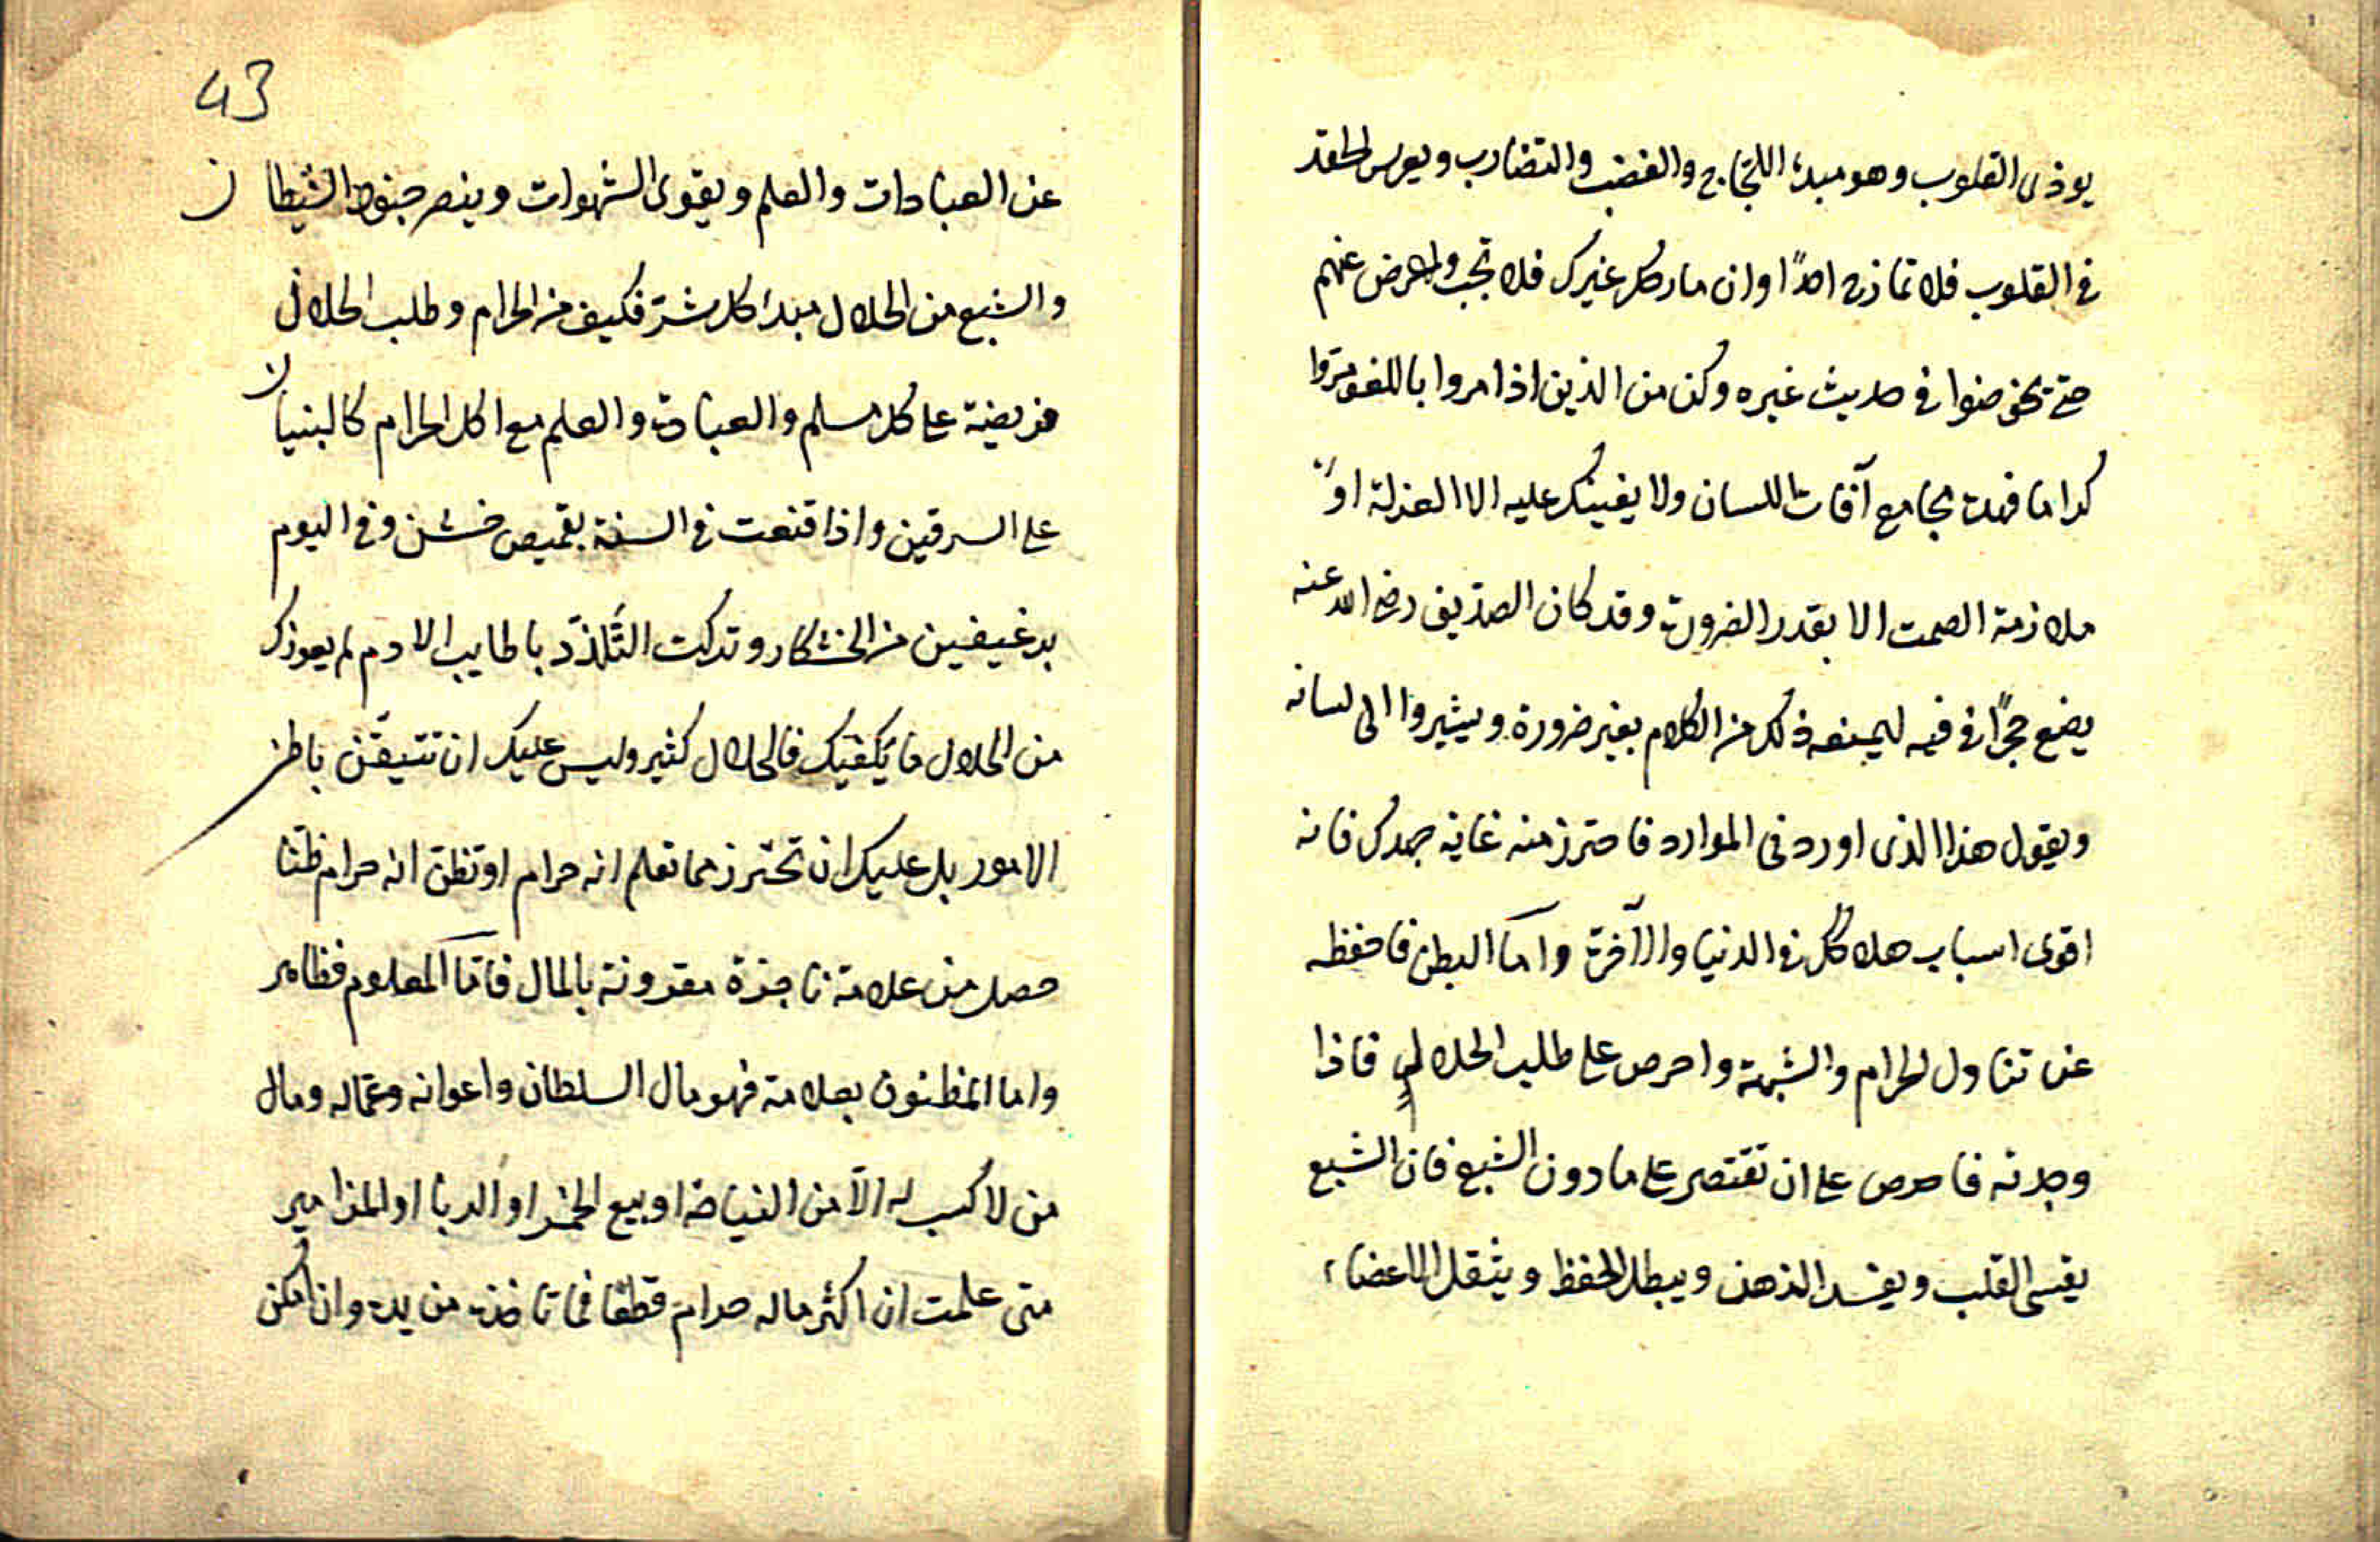 يوذى القلوب وهو مبدء اللجاج والغضب والتضارب ويغرس الحقد
فى القلوب فلا تمازح احدًا وان مازحك غيرك فلا تجب واعرض عنهم
حتى يخوضوا فى حديث غيره وكن من الذين اذا مروا باللغو مروا
كراما فهذه مجامع آفات اللسان ولا يعينك عليه الا العزلة او
ملازمة الصمت الا بقدر الضرورة وقد كان الصديق رضى الله عنه
يضع حجرًا فى فيه ليمنعه ذلك من الكلام بغير ضرورة ويشيروا الى لسانه
ويقول هذا الذى اوردنى الموارد فاحترز منه غاية جهدك فانه
اقوى اسباب هلاكك فى الدنيا والآخرة واما البطن فاحفظه
عن تناول الحرام والشبهة واحرص على طلب الحلال فاذا
وجدته فاحرص على ان تقتصر على ما دون الشبع فان الشبع
يقسى القلب ويفسد الذهن ويبطل الحفظ ويثقل الاعضاء
43
عن العبادات والعلم ويقوى الشهوات وينصر جنود الشيطان
والشبع من الحلال مبدا كل شرّ فكيف من الحرام وطلب الحلال
فريضة على كل مسلم والعبادة والعلم مع اكل الحرام كالبنيان
على السرقين واذا قنعت فى السنة بقميص خشن وفى اليوم
برغيفين من الخشكار وتركت التّلذّذ باطايب الادم لم يعوزك
من الحلال ما يكفيك فالحلال كثير وليس عليك ان تتيقّن باطن
الامور بل عليك ان تحترز مما تعلم انه حرام او تظنّ انه حرام ظنّا
حصل من علامة ناجزة مقرونة بالمال فامّا المعلوم فظاهر
واما المظنون بعلامة فهو مال السلطان واعوانه وعمّاله ومال
من لا كسب له الّا من النياحة او بيع الخمر او الربا او المزامير
متى علمت ان اكثر ماله حرام قطعًا فما تاخذه من يده وان امكن